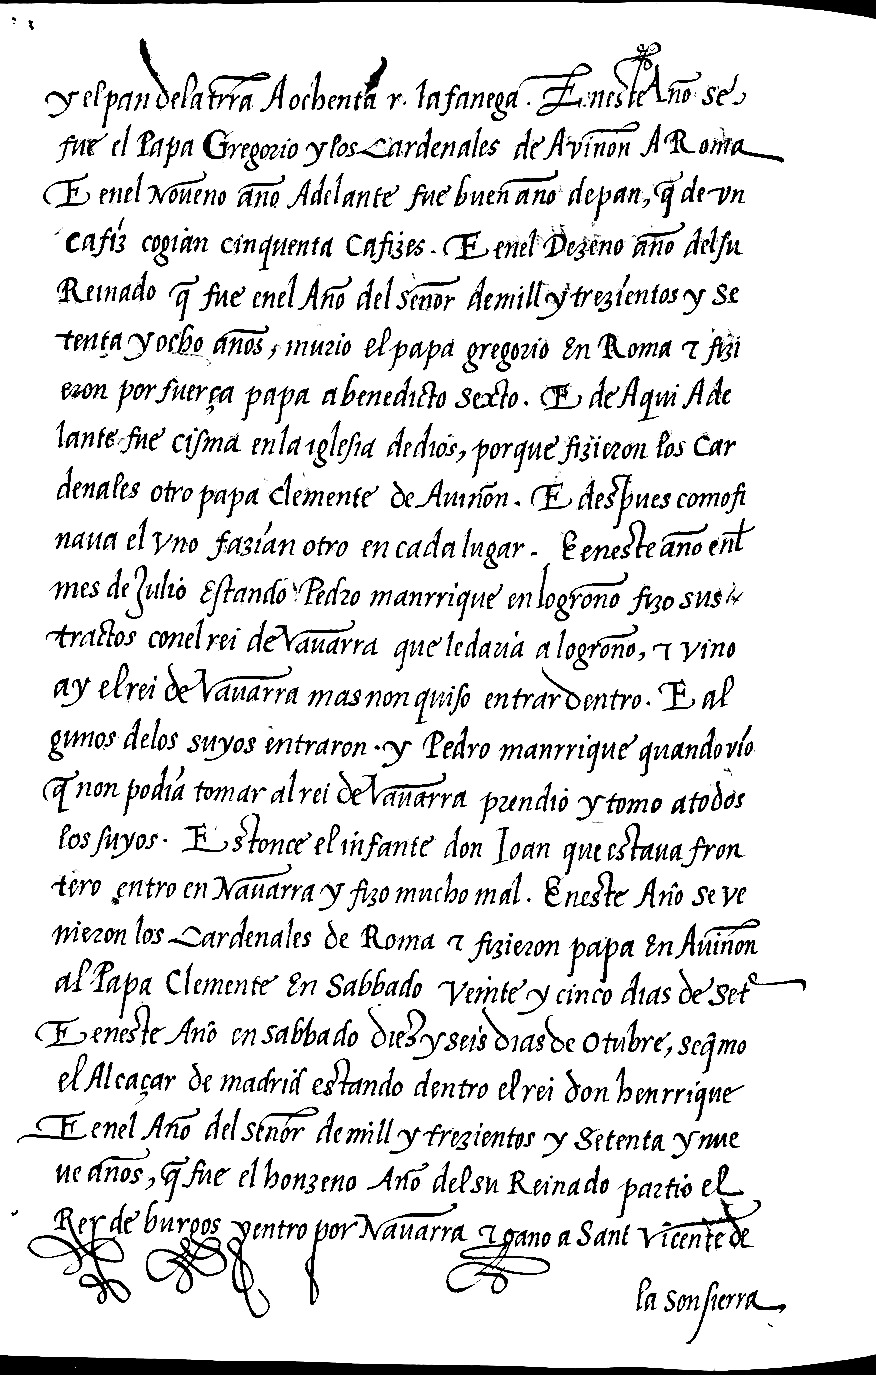 y el pan de la trra A ochenta r. la fanega. Eneste Año se
fue el Papa Gregorio y los Cardenales de Aviñon A Roma
E enel Noueno año Adelante fue buen año de pan, q̃ de vn
cafiz cogian cinquenta Cafizes. E enel Dezeno año del su
Reinado q̃ fue enel Año del señor de mill y trezientos y Se
tenta y ocho años, murio el papa gregorio en Roma ⁊ fizi
eron por fuerça papa a benedicto sexto. E de Aqui Ade
lante fue cisma en la iglesia de dios, porque fizieron los Car
denales otro papa Clemente de Auiñon. E despues como fi
naua el vno fazían otro en cada lugar. E eneste año enl
mes de Julio Estando Pedro manrrique en logroño fizo sus
tractos conel rei de Nauarra que le daria a logroño, ⁊ vino
ay el rei de Nauarra mas non quiso entrar dentro. E al
gunos delos suyos entraron. y Pedro manrrique quando vío
q̃ non podía tomar al rei de Nauarra prendio y tomo a todos
los suyos. Estonce el infante don Ioan que estaua fron
tero entro en Nauarra y fizo mucho mal. Eneste Año se ve
nieron los Cardenales de Roma ⁊ fizieron papa en Auiñon
al Papa Clemente En Sabbado Veinte y cinco dias de Set
E eneste Año en sabbado diez y seis dias de Otubre, se q̃mo
el Alcaçar de madrid estando dentro el rei don henrrique
E enel Año del señor de mill y trezientos y Setenta y nue
ue años, q̃ fue el honzeno Año del su Reinado partio el
Rey de burgos y entro por Nauarra ⁊ gano a Sant Vicente de
la sonsierra,